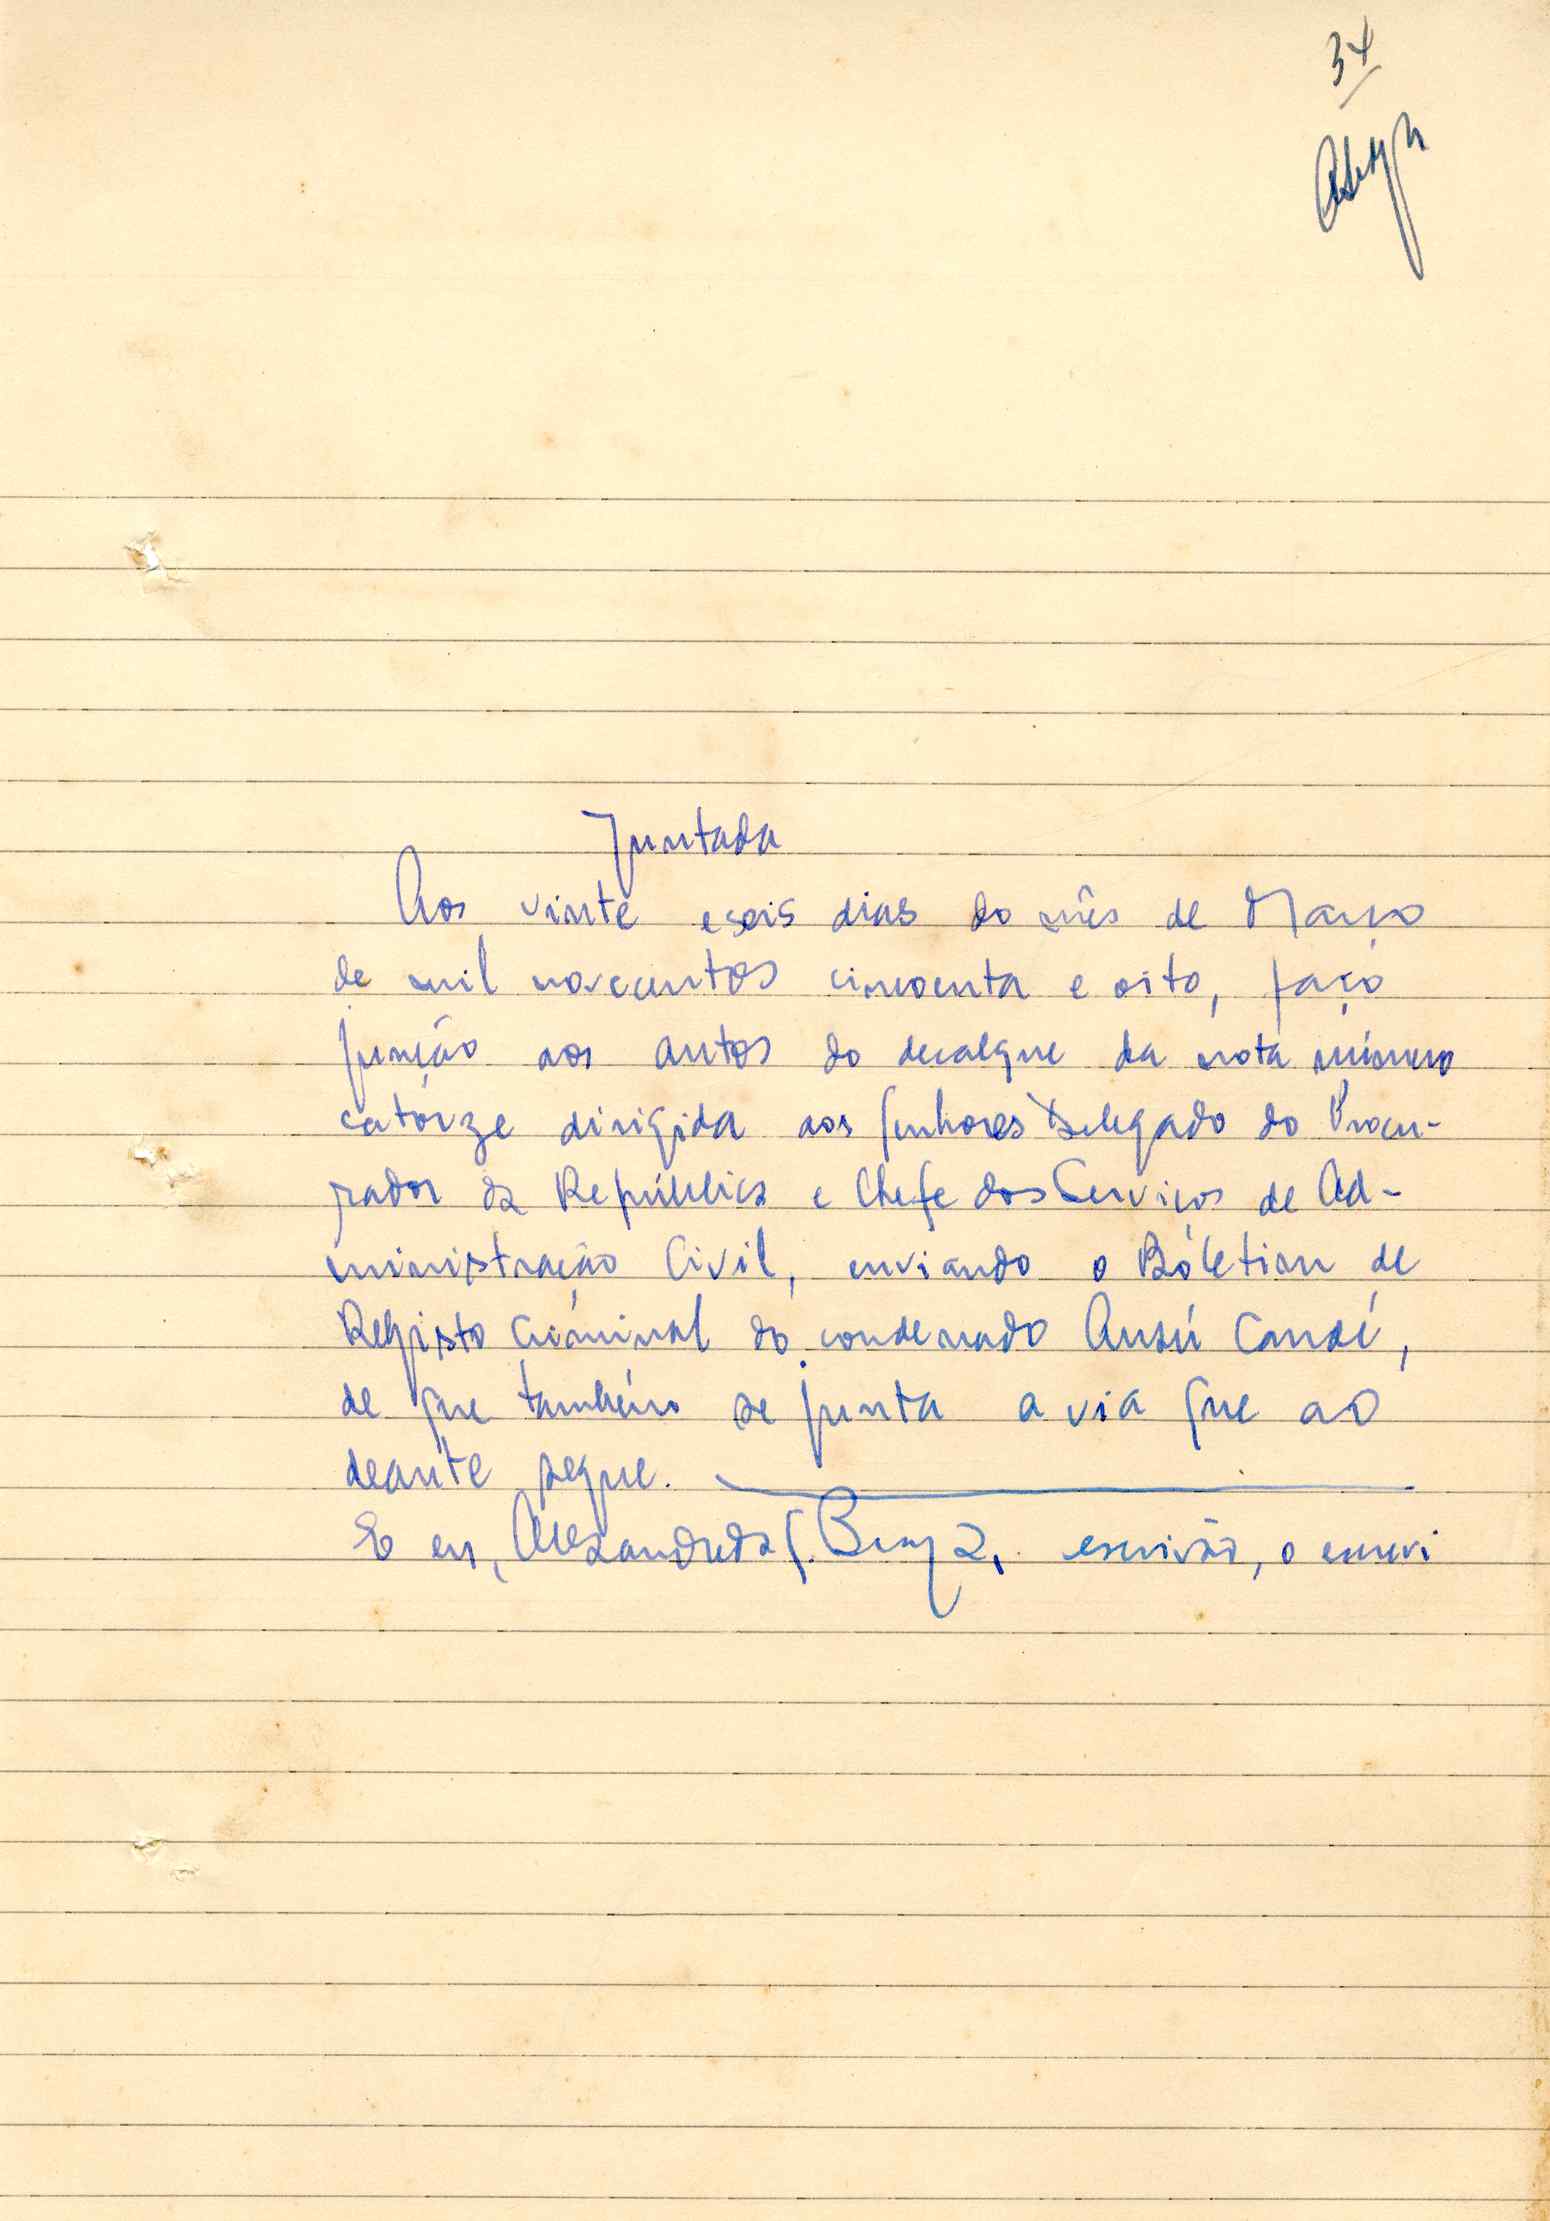 34
Juntada
Aos vinte e seis dias do mês de Março
de mil novecentos cincoenta e oito, faço
junção aos autos do decalque da nota número
catorze dirigida aos Senhores Delegado do Procu-
rador da República e Chefe dos Serviços de Ad-
ministração Civil, enviando o Bóletim de
Registo Criminal do condenado Ansú Candé,
de que também se junta a via que ao
deante segue.
E eu, Alexandre da escrivão, o escrevi